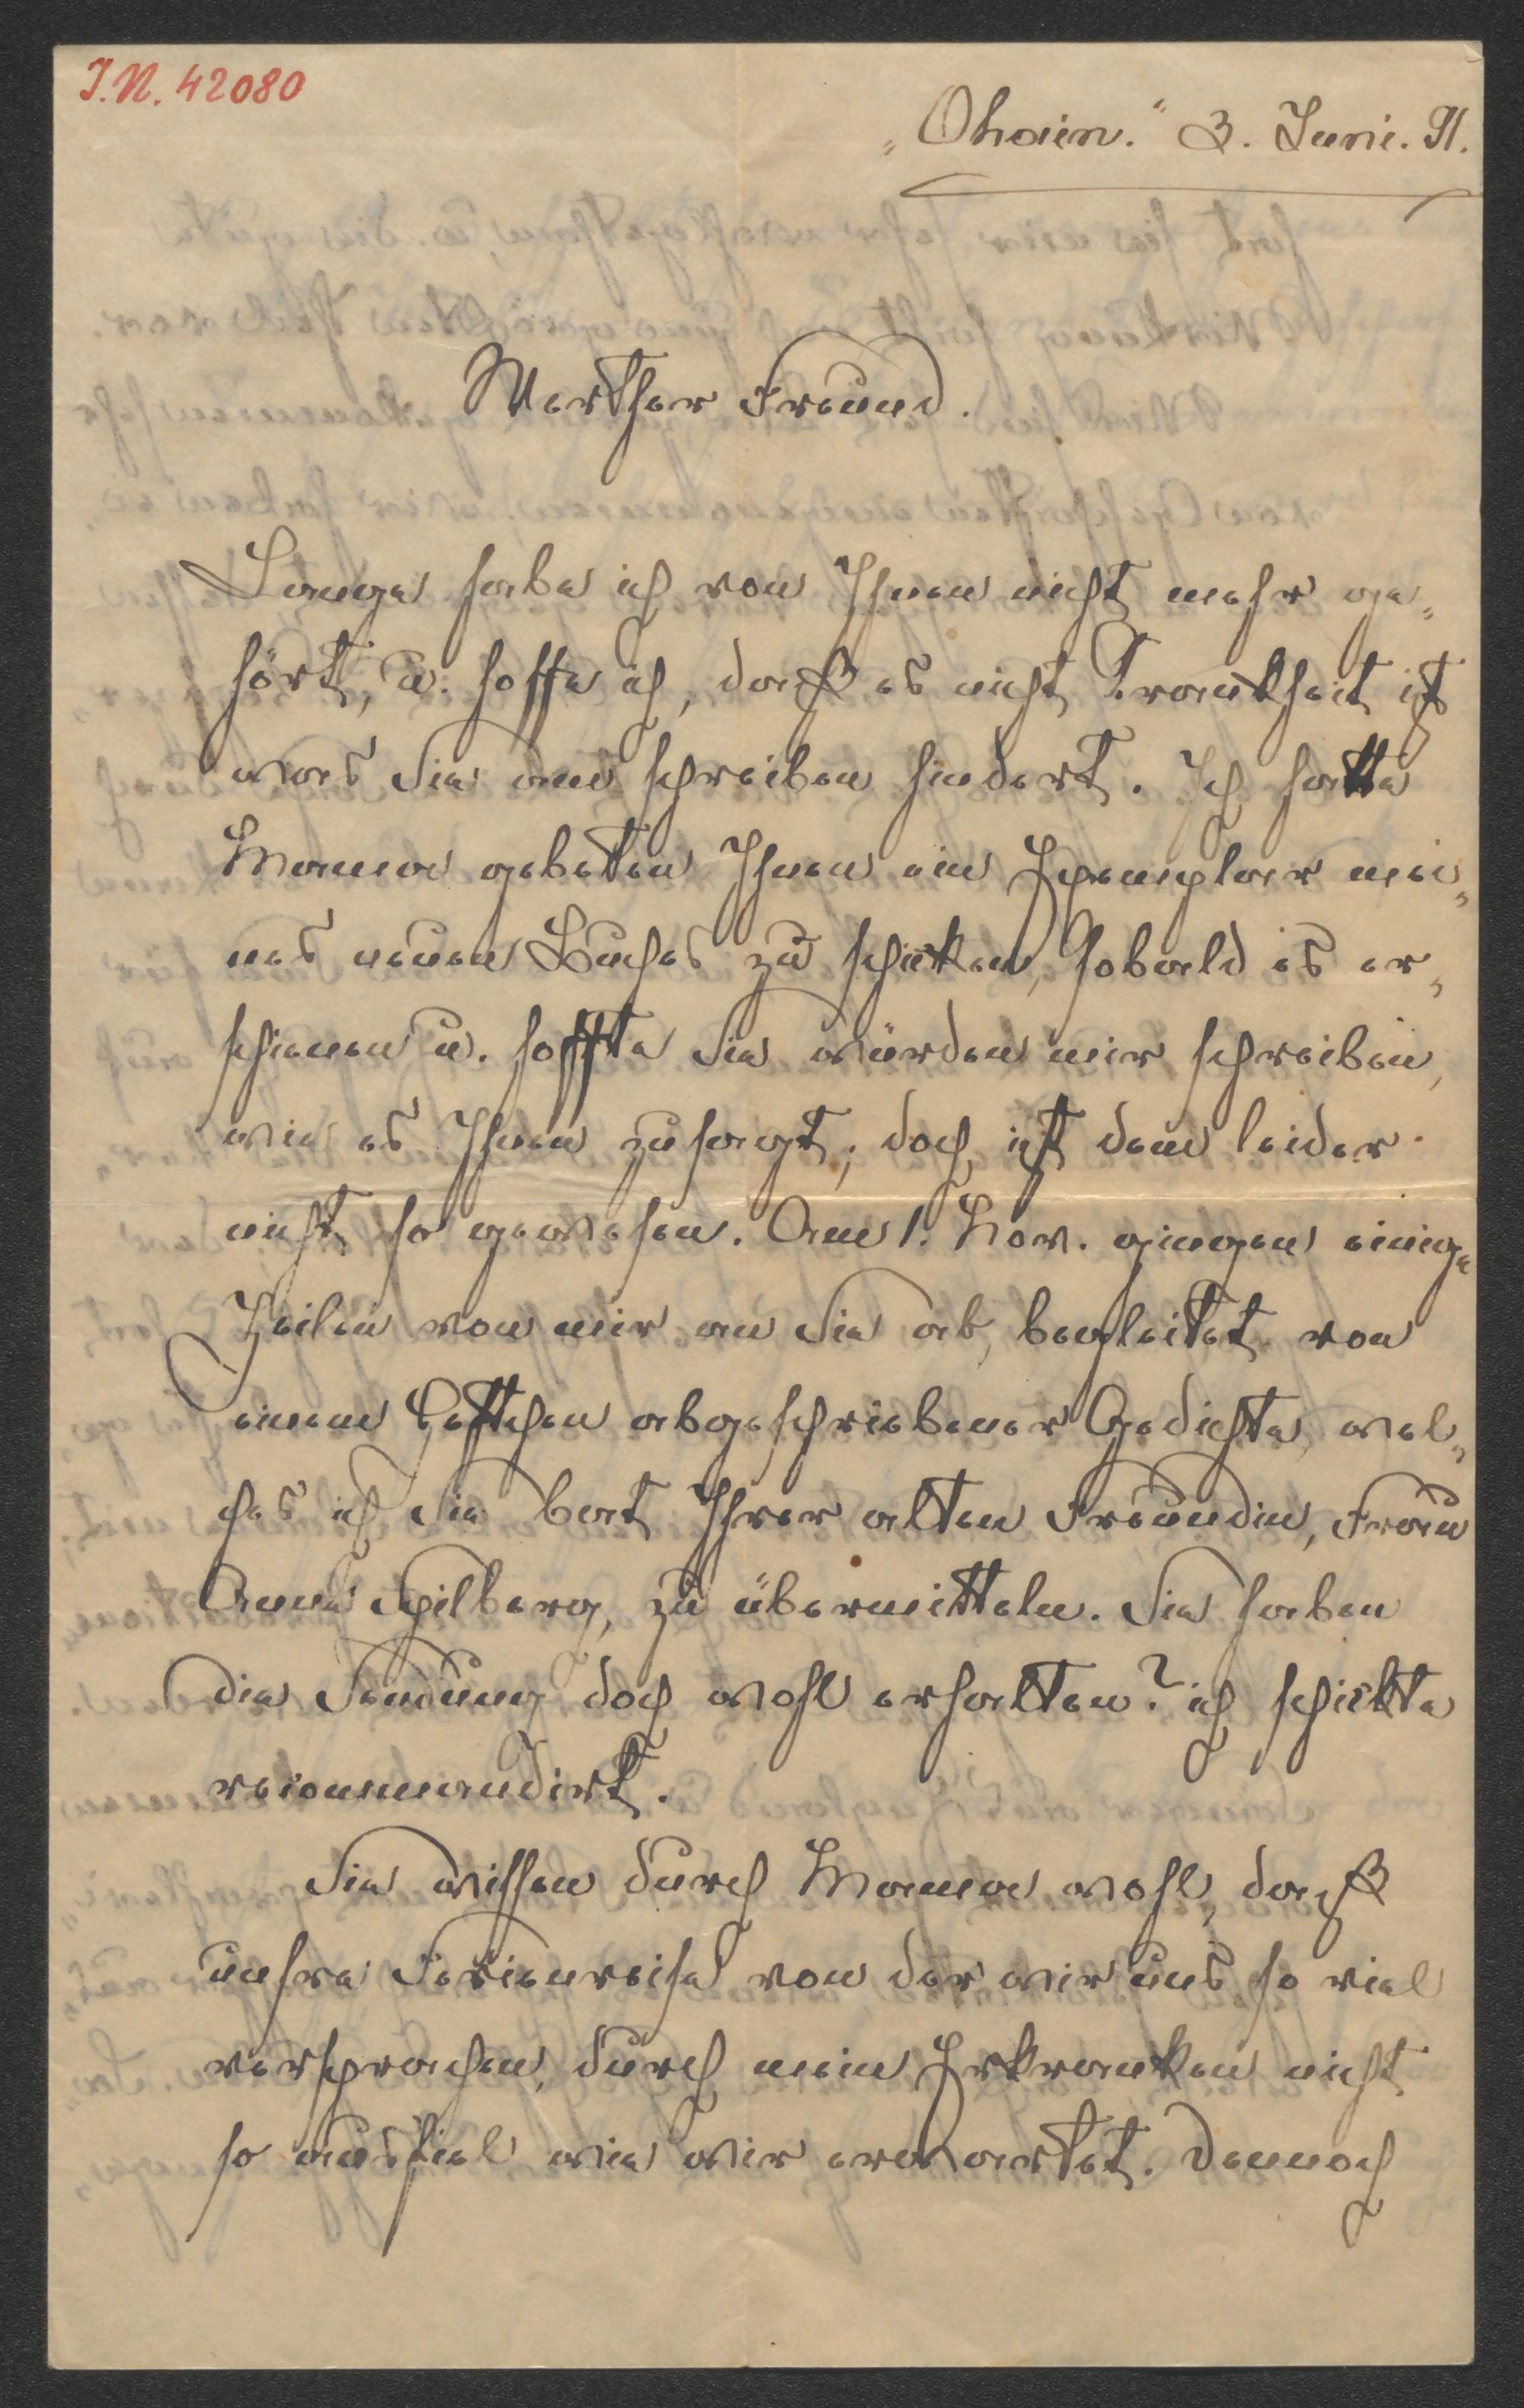 I.N. 42080
„Ohain.“ 3. Juni. 91.
Werther Freund.
Lange habe ich von Ihnen nicht mehr ge„
hört, u. hoffe ich, daß es nicht Krankheit ist
was Sie am schreiben hindert. Ich hatte
Mama gebeten Ihnen ein Exemplar mei„
nes neuen Buches zu schicken, sobald es er„
schienen u. hoffte Sie würden mir schreiben,
wie es Ihnen zusagt; doch ist dem leider
nicht so gewesen. Am 1. Nov. gingen einige
Zeilen von mir an Sie ab, begleitet von
einem Heftchen abgeschriebener Gedichte, wel„
ches ich Sie bat Ihrer alten Freundin, Frau
Anna Spilberg, zu übermitteln. Sie haben
die Sendung doch wohl erhalten? ich schickte
recommandirt.
Sie wissen durch Mama wohl, daß
unsre Ferienreise von der wir uns so viel
versprochen, durch mein Erkranken nicht
so ausfiel wie wir erwartet. Dennoch